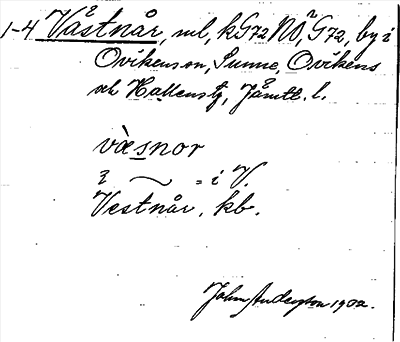 1-4 Våstnår, ml, kG72NÖ, G72, by i
Ovikenson, Sunne, Ovikens
och Hallens tg, Jämtl. l.
væsnor
i ~ = i V.
Vestnår, kb.
John Anderson 1902.